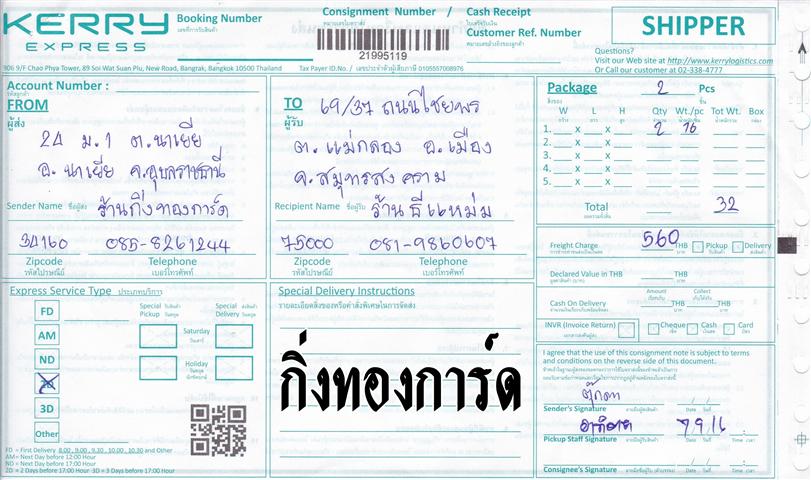 KERRY
EXPRESS
Booking Number
เลขที่การรับสินค้า
Consignment Number / Cash Receipt
หมายเลขใบตราส่ง
ใบเสร็จรับเงิน
21995119
Customer Ref. Number
หมายเลขอ้างอิงของลูกค้า
SHIPPER
Questions?
Visit our Web site at http://www.kerrylogistics.com
Or Call our customer at 02-338-4777
906 9/F Chao Phya Tower, 89 Soi Wat Suan Plu, New Road, Bangrak, Bangkok 10500 Thailand
Tax Payer ID.No. / เลขประจำตัวผู้เสียภาษี 0105557008976
Account Number :
รหัสลูกค้า
FROM
ผู้ส่ง
24 ม.1 ต.นาเยีย
อ.นาเยีย จ.อุบลราชธานี
Sender Name ชื่อผู้ส่ง ร้านกิ่งทองการ์ด
34160 085-8261244
Zipcode Telephone
รหัสไปรษณีย์ เบอร์โทรศัพท์
TO
ผู้รับ
69/37 ถนนไชยพร
ต.แม่กลอง อ.เมือง
จ.สมุทรสงคราม
Recipient Name ชื่อผู้รับ ร้านธีแหม่ม
75000 081-9860607
Zipcode Telephone
รหัสไปรษณีย์ เบอร์โทรศัพท์
Package 2 Pcs
สิ่งของ ชิ้น
W L H Qty Wt./pc Tot Wt. Box
กว้าง ยาว สูง จำนวน
1. x x 2 16
2. x x
3. x x
4. x x
5. x x
Total 32
Freight Charge 560 THB Pickup Delivery
Declared Value in THB
Cash On Delivery
Amount Collect
THB
บาท
INVR (Invoice Return) Cheque Cash Card
เช็ค เงินสด บัตร
Express Service Type ประเภทบริการ
FD
AM
ND
2D
3D
Other
Special Pickup
Special Delivery
Saturday
วันเสาร์
Holiday
วันหยุด
นักขัตฤกษ์
FD = First Delivery 8.00 , 9.00 , 9.30 , 10.00 , 10.30 and Other
AM= Next Day before 12:00 Hour
ND = Next Day before 17:00 Hour
2D = 2 Days before 17:00 Hour 3D = 3 Days before 17:00 Hour
Special Delivery Instructions
รายละเอียดสิ่งของหรือคำสั่งพิเศษในการจัดส่ง
กิ่งทองการ์ด
I agree that the use of this consignment note is subject to terms
and conditions on the reverse side of this document.
ตุ๊กตา
Sender's Signature ลายมือชื่อผู้ส่งสินค้า Date วันที่
7 9 16
Pickup Staff Signature ลายมือชื่อผู้รับสินค้า Date วันที่ Time เวลา
Consignee's Signature Date วันที่ Time เวลา